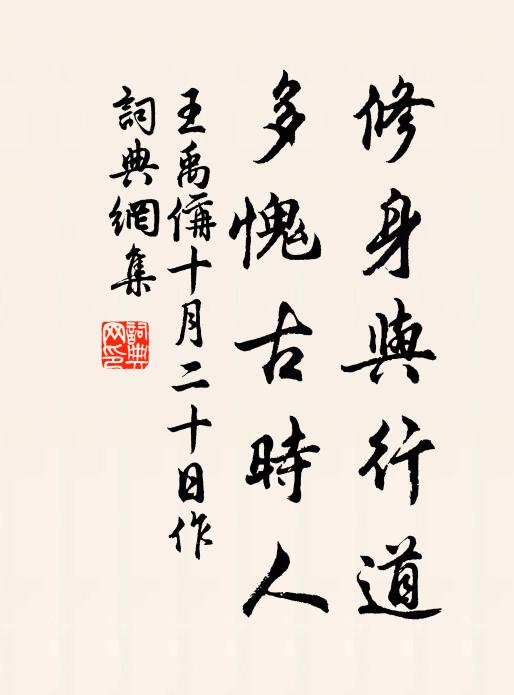 修身與行道
多愧古時人
王禹偁十月二十日作
詞典網集
詞典網印